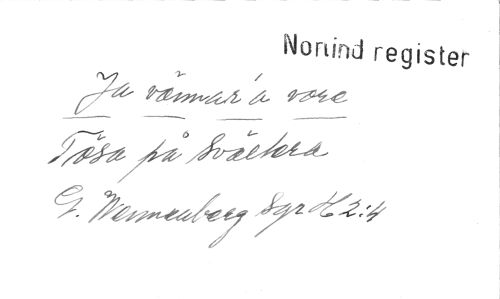 Norrind register
Ja vännar'a vore
Tösa på
G. Wennerberg Syr H 2:4